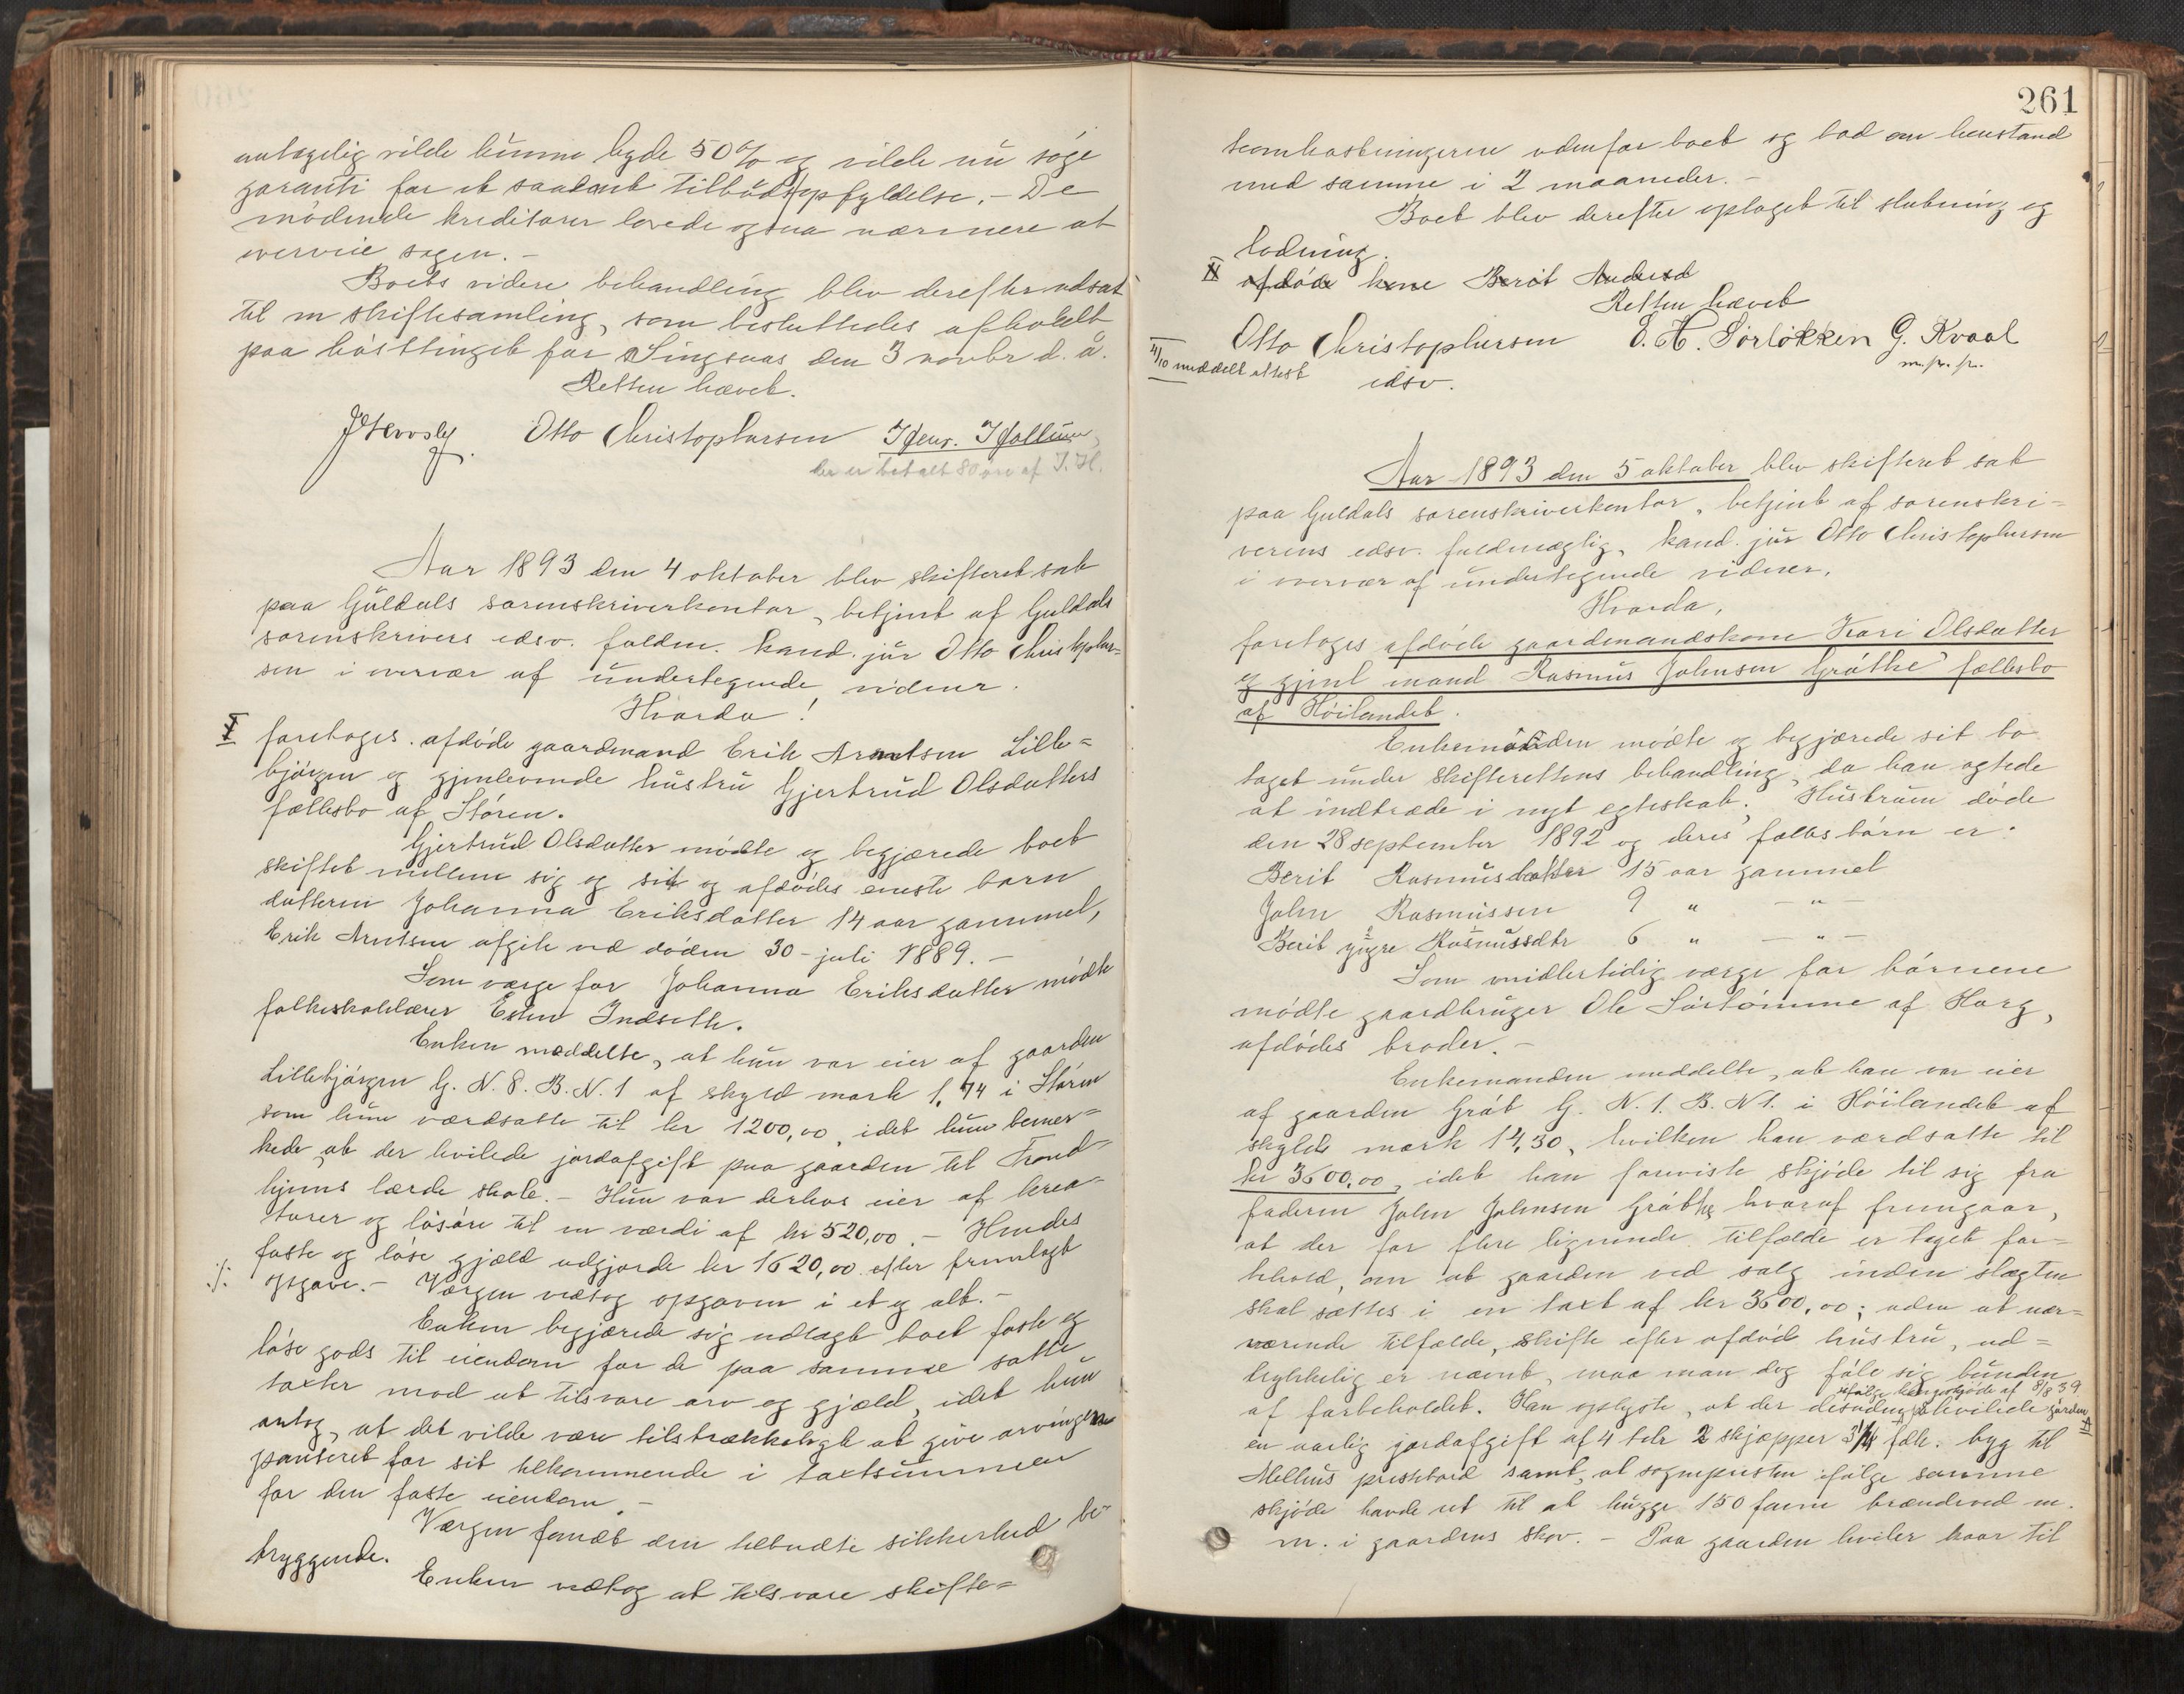 antagelig vilde kunne byde 50% og vilde nu søge
garanti for et saadant tilbuds opfyldelse. - De
mødende kreditorer lovede ogsaa nærmere at
overveie sagen. -
Boets videre behandling blev derefter udsat
til en skiftesamling, som besluttedes afholdt
paa høsttinget for Singsaas den 3 novbr d. å.
Retten hævet.
Otto Christophersen
her er betalt 80 øre af I. H.
Aar 1893 den 4 oktober blev skifteret sat
paa Guldals sorenskriverkontor, betjent af Guldals
sorenskrivers edsv. fuldm. kand. jur Otto Christopher-
sen i overvær af undertegnede vidner.
Hvorda!
I foretoges afdøde gaardmand Erik Arntsen Lille-
bjørgen og gjenlevende hustru Gjertrud Olsdatters
fællesbo af Støren.
Gjertrud Olsdatter mødte og begjærede boet
skiftet mellem sig og sit og afdødes eneste barn
datteren Johanna Eriksdatter 14 aar gammel,
Erik Arntsen afgik ved døden 30 - juli 1889. -
Som værge for Johanna Eriksdatter mødte
folkeskolelærer Esten Indseth.
Enken meddelte, at hun var eier af gaarden
Lillebjørgen G. N. 8. B. N. 1 af skyld mark 1,74 i Støren
som hun værdsatte til kr 1200,00, idet hun bemær-
kede, at der hvilede jordafgift paa gaarden til Trond-
hjems lærde skole. - Hun var derhos eier af krea-
turer og løsøre til en værdi af kr 520,00. - Hendes
faste og løse gjæld udgjorde kr 1620,00 efter fremlagt
./. opgave. - Værgen vedtog opgaven i et og alt. -
Enken begjærede sig udlagt boet faste og
løse gods til eiendom for de paa samme satte
taxter mod at tilsvare arv og gjæld, idet hun
antog, at det vilde være tilstrækkeligt at give arvingerne
panteret for sit tilkommende i taxtsummen
for den faste eiendom. -
Værgen fandt den tilbudte sikkerhed be-
tryggende.
Enken vedtog at tilsvare skifte-
261
teomkostningerne udenfor boet og bad om henstand
med samme i 2 maaneder. -
Boet blev derefter optaget til slutning og
lodning.
II afdøde kone Berit Andersd
Retten hævet
Otto Christophersen E. H. Sørløkken G. Kvaal
m. p. p.
11/10 meddelt attest
edsv.
Aar 1893 den 5 oktober blev skifteret sat
paa Guldals sorenskriverkontor, betjent af sorenskri-
verens edsv. fuldmægtig, kand. jur Otto Christophersen
i overvær af undertegnede vidner.
Hvorda,
foretoges afdøde gaardmandskone Kari Olsdatter
og gjenl mand Rasmus Johnsen Gråthe' fællesbo
af Høilandet.
Enkemanden mødte og begjærede sit bo
taget under skifterettens behandling, da han agtede
at indtræde i nyt egteskab. Hustruen døde
den 28 september 1892 og deres fælles børn er:
Berit Rasmusdatter 15 aar gammel
John Rasmussen 9 " - " -
Berit yngre Rasmussdtr 6 " - " -
Som midlertidig værge for børnene
mødte gaardbruger Ole Sørtømme af Horg,
afdødes broder. -
Enkemanden meddelte, at han var eier
af gaarden Gråt G. N. 1. B. N 1. i Høilandet af
skyld mark 14,30, hvilken han værdsatte til
kr 3600,00, idet han foreviste skjøde til sig fra
faderen John Johnsen Gråthe hvoraf fremgaar,
at der for flere lignende tilfælde er taget for-
behold, om at gaarden ved salg inden slægten
skal sættes i en taxt af kr 3600,00; uden at nær-
værende tilfælde, skifte efter afdød hustru, ud-
trykkelig er nævnt, maa man dog føle sig bunden
ifølge kongeskjøde af 8/8 39
af forbeholdet. Han oplyste, at der desuden påhvilede gården
en aarlig jordafgift af 4 tdr 2 skjæpper 3 1/4 fdk. byg til
Melhus prestebord samt, at sognepresten ifølge samme
skjøde havde ret til at hugge 150 favne brændeved m.
m. i gaardens skov. - Paa gaarden hviler kaar til